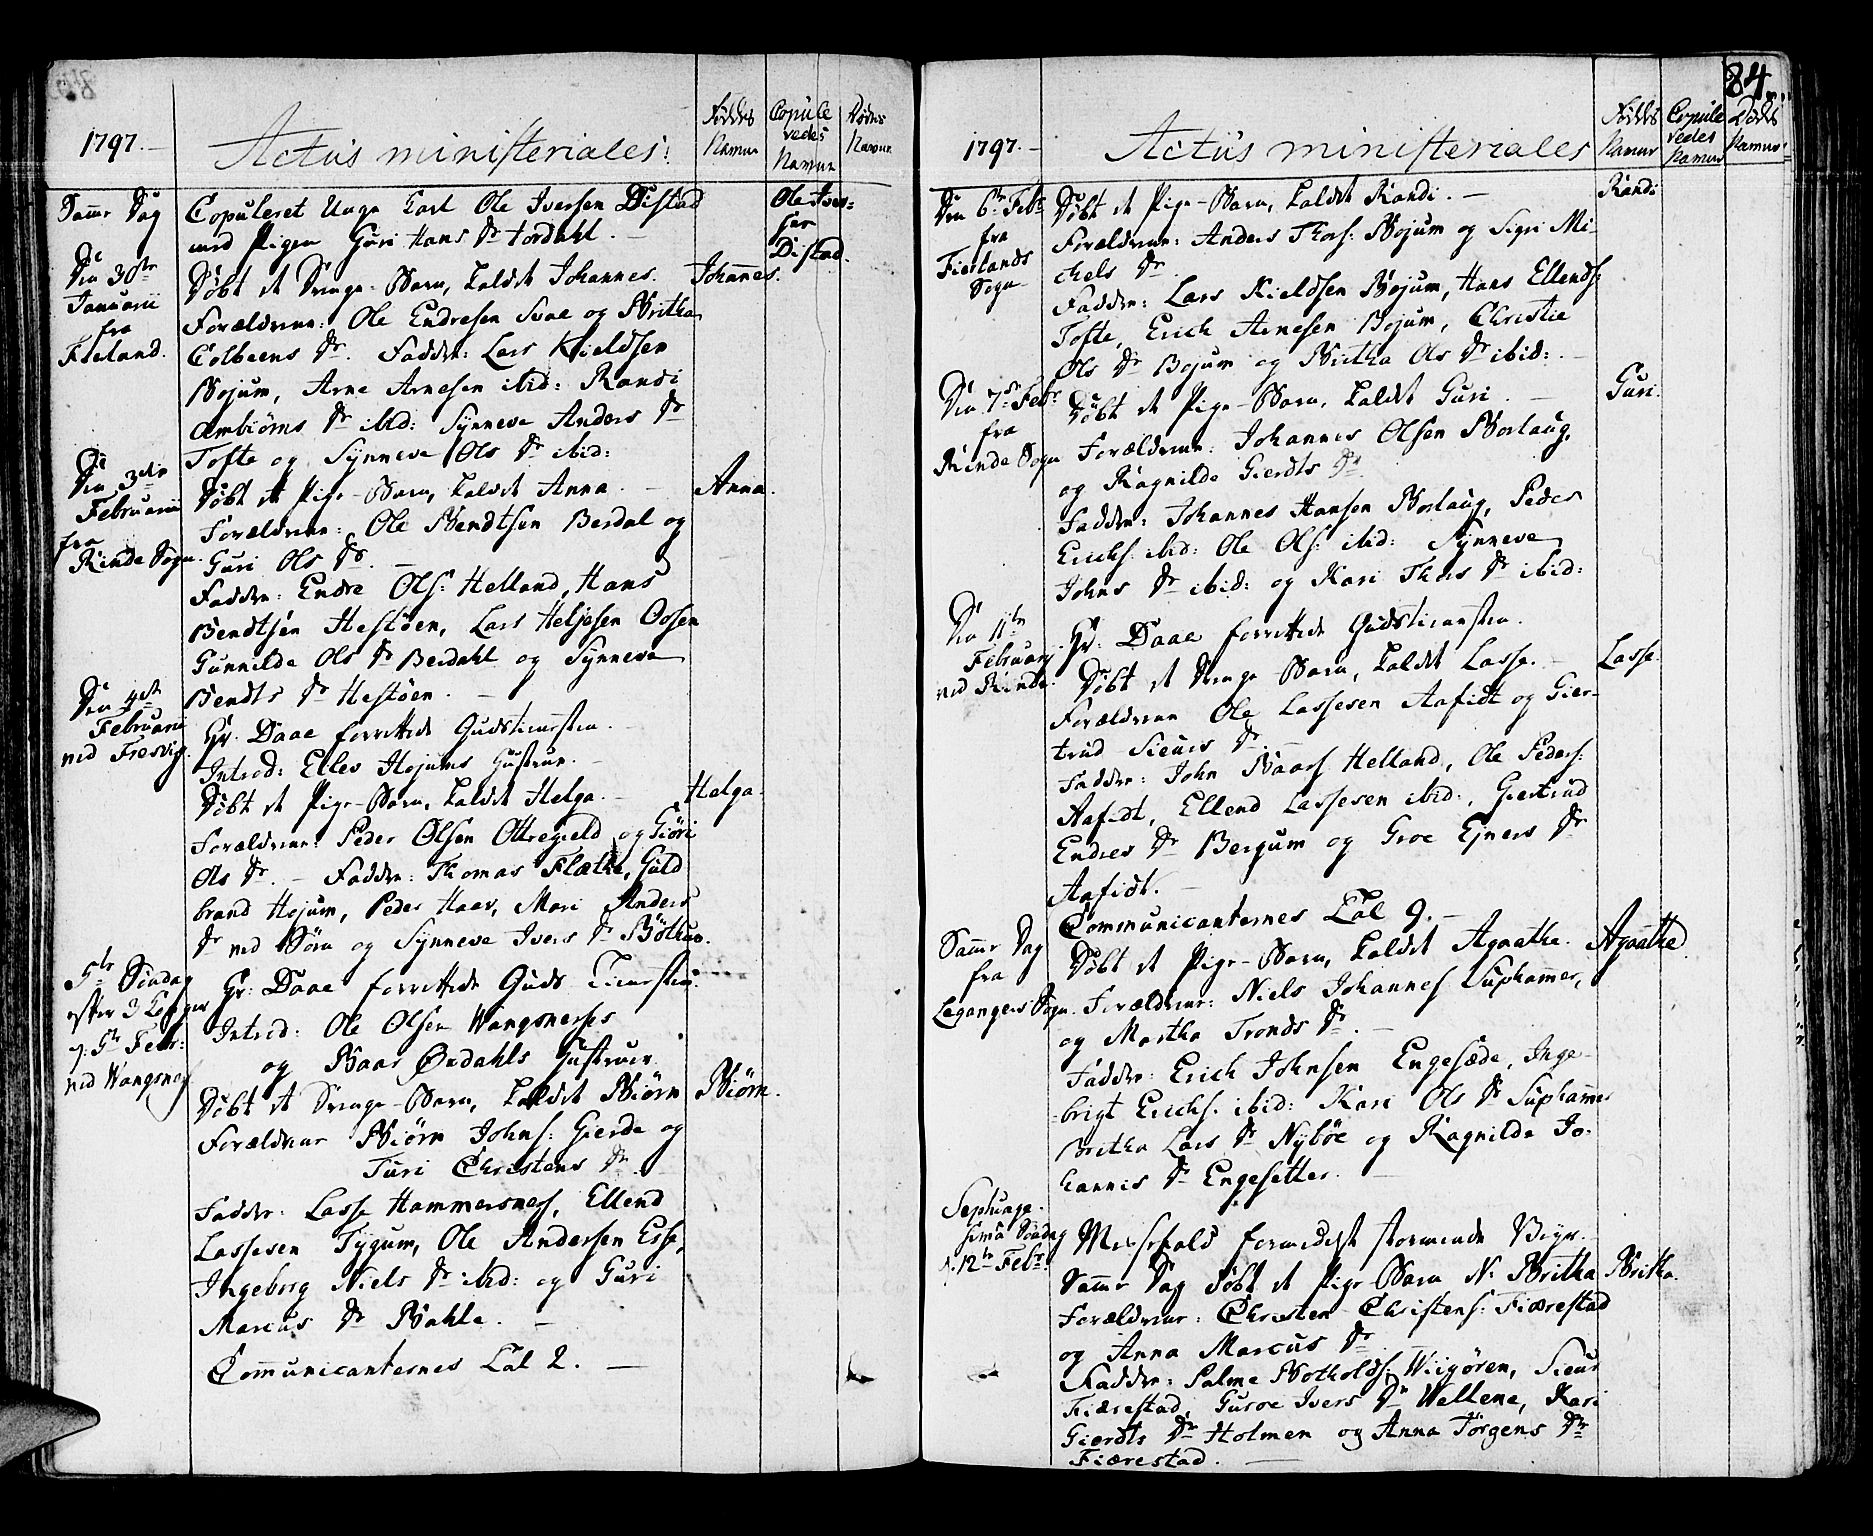 1797.
Actus ministeriales:
Føddes Navne
Copule vedes Navne
Dødes Navne
Samme Dag
Copuleret Unge Karl Ole Iversen Distad
med Pigen Guri Hans Dr Tordahl. —
Ole Iver=
sen
Distad.
Den 30te Januarii fra Fierland.
Døbt et Drenge-Barn, kaldet Johannes.
Johannes.
Forældrene: Ole Endresen Svae og Britha
Colbeens Dr. Faddere: Lars Kieldsen
Bojum, Arne Arnesen ibid: Randi
Ambiørns Dr ibid: Synneve Anders Dr
Tofte og Synneve Ols Dr ibid:
Den 3die Februarii fra Rinde Sogn.
Døbt et Pige-Barn, kaldet Anna. —
Anna.
Forældrene: Ole Bendtsen Berdal og
Guri Ols Dr. —
Faddere: Endre Ols: Helland, Hans
Bendtsen Hestøen, Lars Heljesen Ossen
Gunnilde Ols Dr Berdahl og Synneve
Bendts Dr Hestøen. —
Den 4de Februarii ved Fresvig.
Hr: Daae forrettede Gudstienesten. —
Introd: Ellev Hojums Hustrue. —
Døbt et Pige-Barn, kaldet Helga. —
Helga.
Forældrene: Peder Olsen Ottregield og Giøri
Ols Dr. — Faddere: Thomas Flæthe, Guld
brand Hojum, Peder Haav, Mari Anders
Dr ved Søen og Synneve Ivers Dr Bøthun.
5te Søndag efter 3 Konger 5te Febr: ved Wangsnes
Hr: Daae forrettede Guds Tienesten.
Introd: Ole Olsen Wangsnesses
og Baar Ovdahls Hustruer.
Døbt et Drenge-Barn, kaldet Biørn
Biørn.
Forældrene Biørn Johns: Gierde og
Turi Christens Dr
Faddere: Lasse Hammersnes, Ellend
Lassesen Tygum, Ole Andersen Esse,
Ingeborg Niels Dr ibid: og Guri
Marcus Dr Bahle. —
Communicanternes Tal 2. —
84.
1797. —
Actus ministeriales
Føddes Navne
Copule vedes Navne
Dødes Navne
Den 6te Febr fra Fierlands Sogn
Døbt et Pige-Barn, kaldet Randi. —
Randi
Forældrene: Anders Thors: Bojum og Sigri Mi=
chels Dr
Faddere: Lars Kieldsen Bojum, Hans Ellends:
Tofte, Erich Arnesen Bojum, Christie
Ols Dr Bojum og Britha Ols Dr ibid: —
Den 7de Febr: fra Rinde Sogn
Døbt et Pige-Barn, kaldet Guri. —
Guri.
Forældrene: Johannes Olsen Borlaug,
og Ragnilde Gierdts Dr
Faddere: Johannes Hansen Borlaug, Peder
Erichs: ibid: Ole Ols: ibid: Synneve
Johns Dr ibid: og Kari Thors Dr ibid:
Den 11te Februarii ved Rinde.
Hr: Daae forrettede Gudstienesten.
Døbt et Drenge Barn, kaldet Lasse. —
Lasse.
Forældrene Ole Lassesen Aafidt og Gier=
trud Sieurs Dr. —
Faddere: John Baars: Helland, Ole Peders:
Aafidt, Ellend Lassesen ibid:, Giertrud
Endres Dr Bergum og Groe Ejners Dr
Aafidt. —
Communicanternes Tal 9. —
Samme Dag fra Leganger Sogn.
Døbt et Pige-Barn, kaldet Agaathe.
Agaathe.
Forældrene: Niels Johannes: Suphamer,
og Martha Tronds Dr. —
Faddere: Erich Johnsen Engesæde, Inge=
brigt Erichs: ibid: Kari Ols Dr Suphammer
Britha Lars Dr Nybøe og Ragnilde Jo=
hannis Dr Engesetter. —
Septuagesima Søndag 12te Febr:
Messefald formedelst stormende Veyr. —
Samme Dag døbt et Pige Barn N. Britha
Britha.
Forældrene: Christen Christens: Fiærestad
og Anna Marcus Dr
Faddere: Salme Botholds: Wiigøren, Sieur
Fiærestad, Guroe Ivers Dr Wellene, Kari
Gierdts Dr Holmen og Anna Jørgens Dr
Fiærestad. —